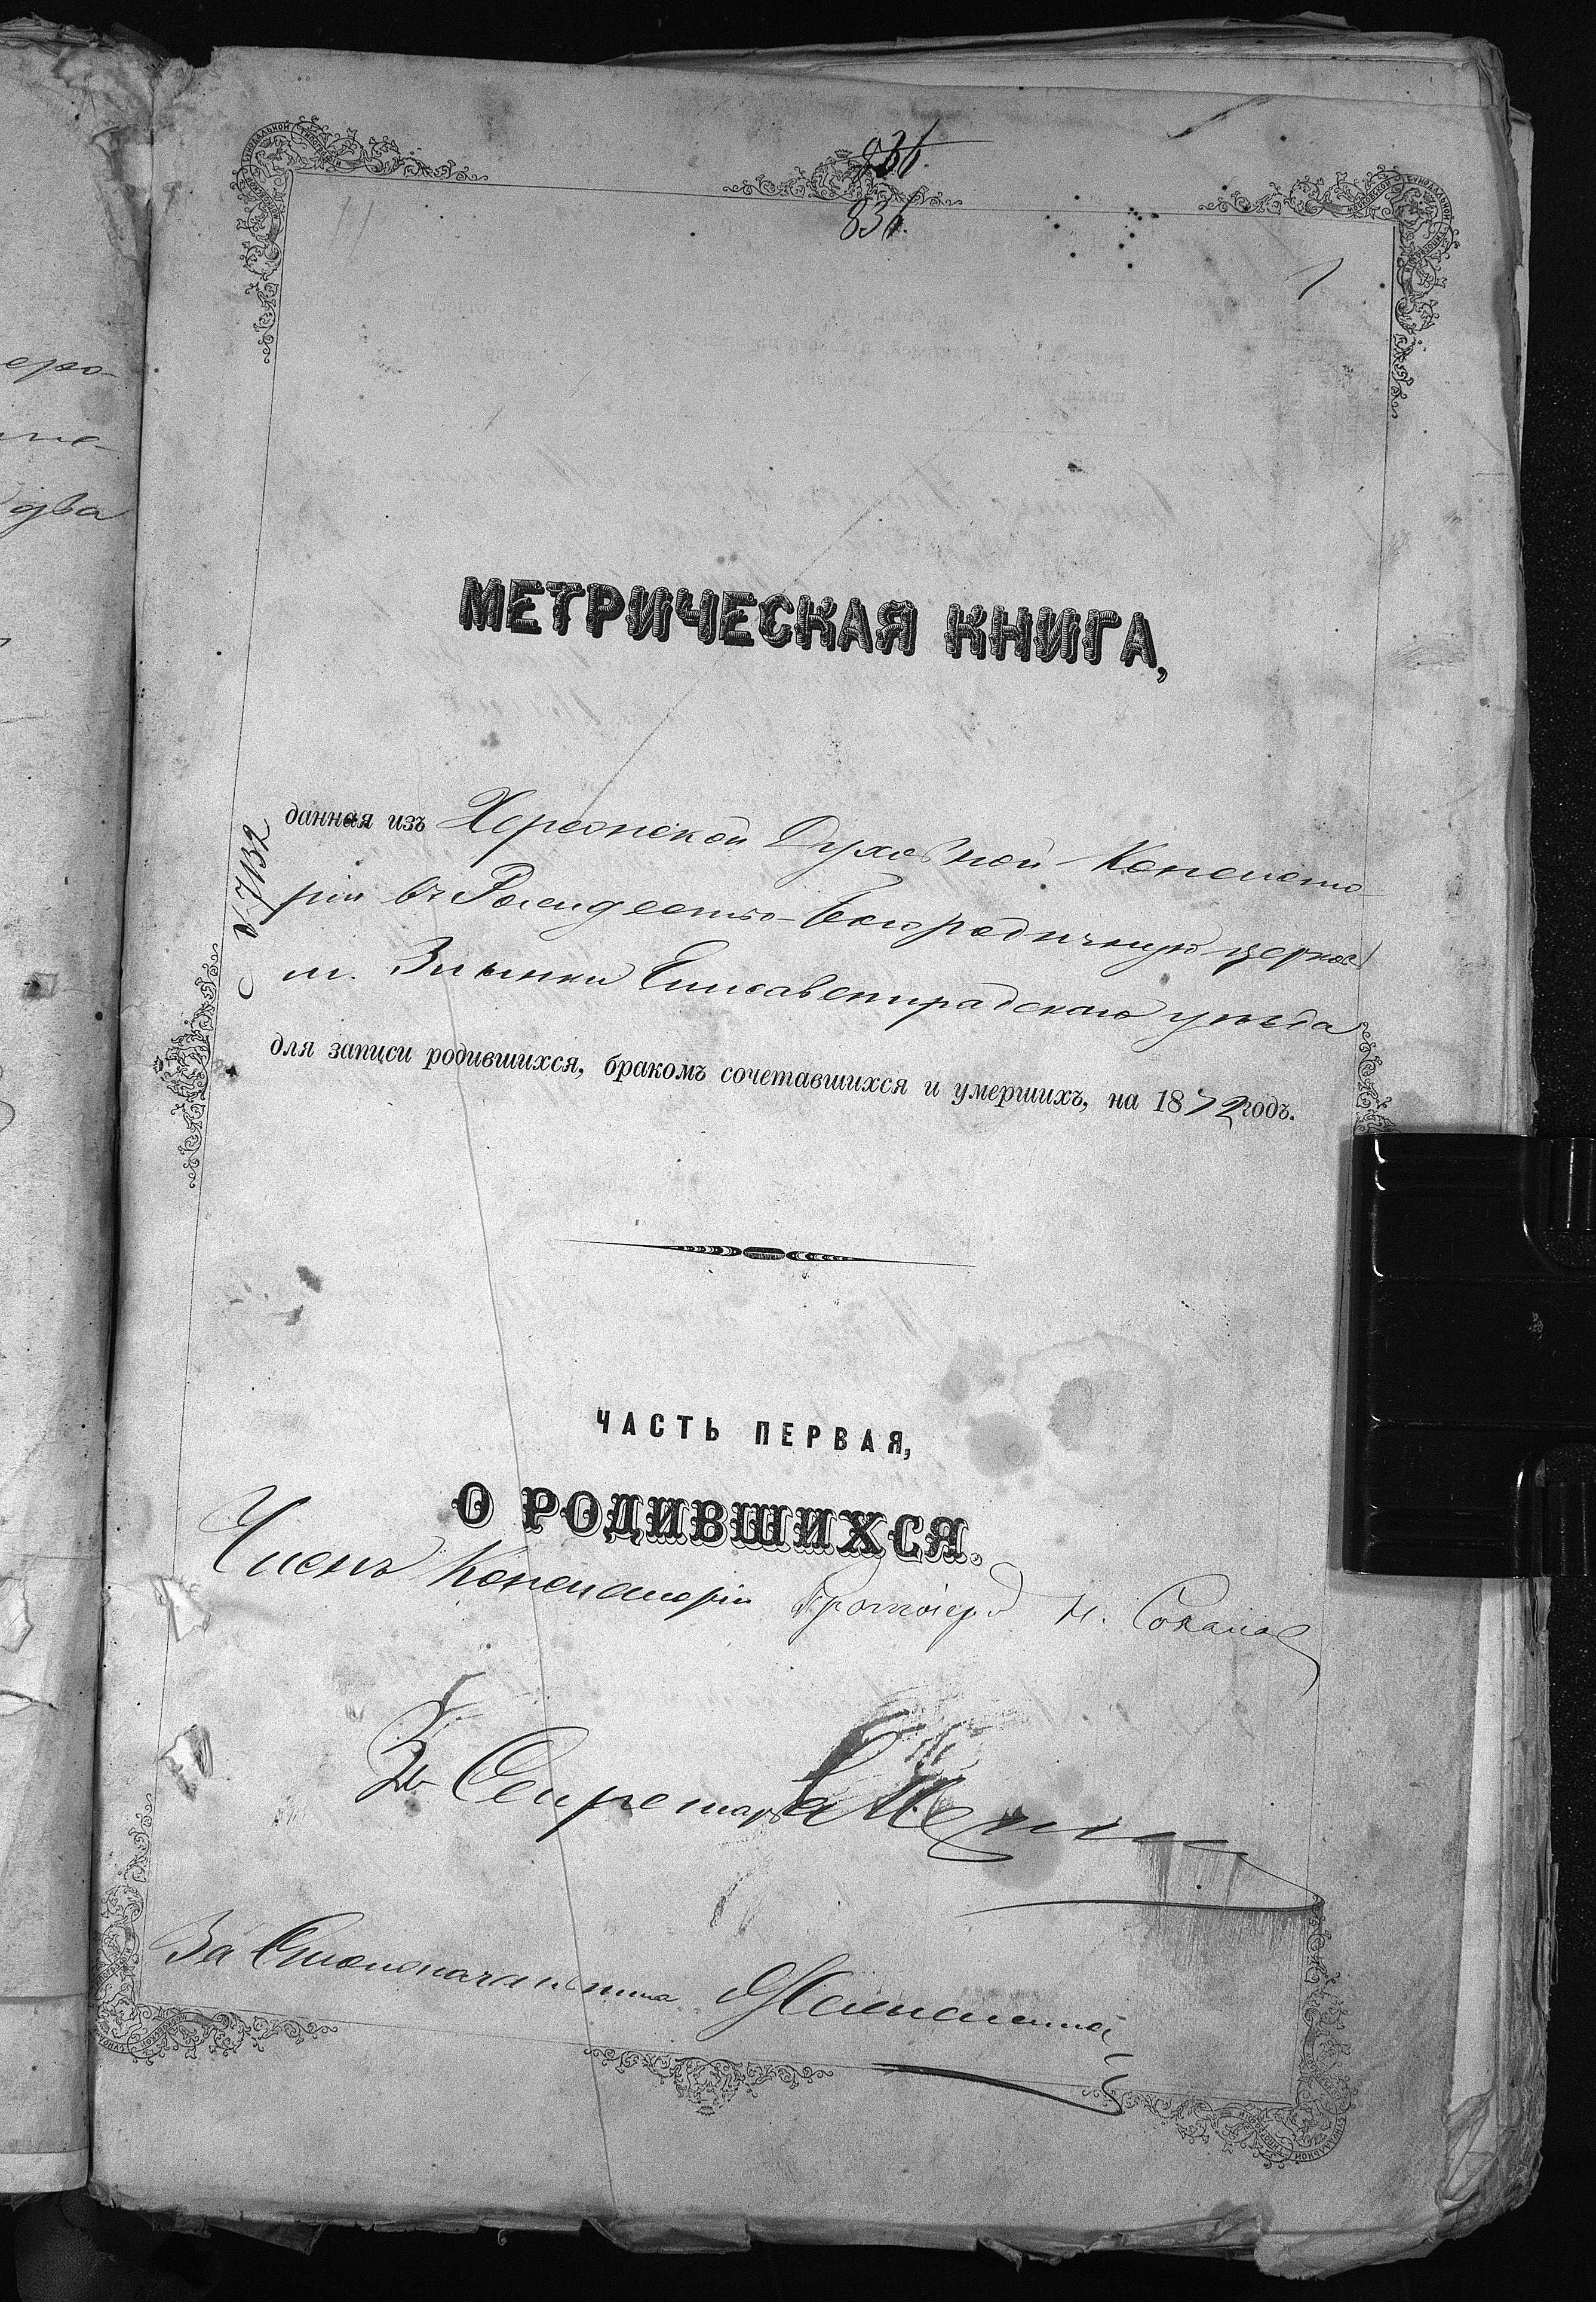 836.
836.
1
МЕТРИЧЕСКАЯ КНИГА,
данная изъ Херсонской Духовной Консисто-
ріи въ Рождество-Богородичную церковь
м. Злынки Елисаветградскаго уѣзда
для записи родившихся, бракомъ сочетавшихся и умершихъ, на 1872 годъ.
№ 7132
ЧАСТЬ ПЕРВАЯ,
О РОДИВШИХСЯ.
Членъ Консисторіи Протоіер. Н. Соколов
За Секретаря
За Столоначальника
еро-
два